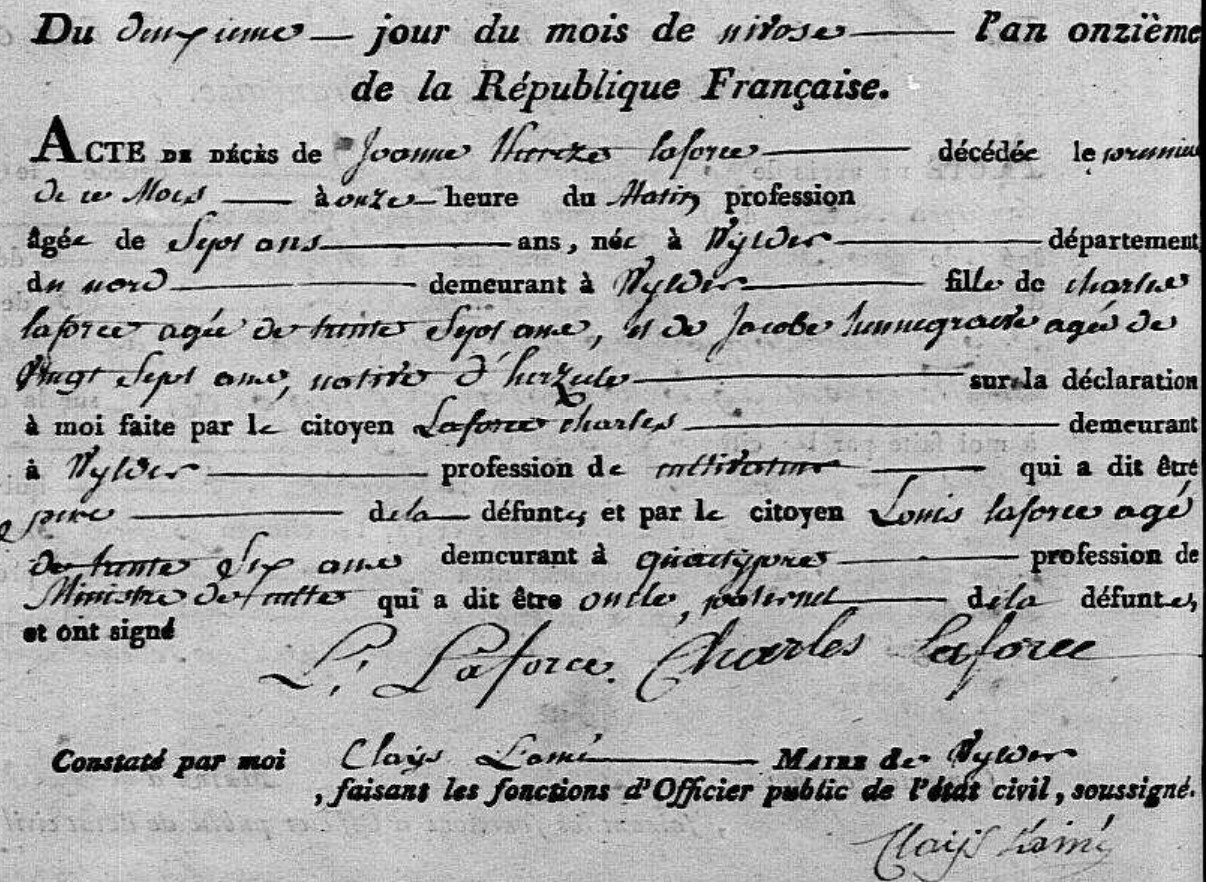 Du deuxieme jour du mois de nivose l'an onzième
de la République Française.
ACTE DE DÉCÈS de Joanne Thereze laforce décédée le premier
de ce Mois à onze heure du Matin profession
âgée de Sept ans ans, née à Wylder département
du nord demeurant à Wylder fille de charles
laforce agée de trente Sept ans, et de Jacobe agée de
Vingt Sept ans, native d'herzeele sur la déclaration
à moi faite par le citoyen Laforce charles demeurant
à Wylder profession de cultivateur qui a dit être
pere de la défunte, et par le citoyen Louis laforce agé
de trente Six ans demeurant à quaetypre profession de
Ministre de culte qui a dit être oncle, paternel de la défunte,
et ont signé
L. Laforce. Charles Laforce
Constaté par moi Claÿs L'ainé MAIRE de Wylder
, faisant les fonctions d'Officier public de l'état civil, soussigné.
Claÿs L'ainé